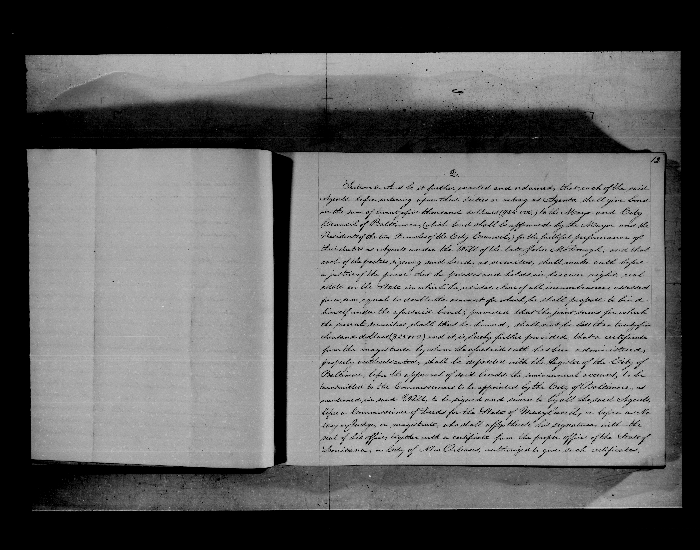 12
2.
Section 2. And be it further enacted and ordained, that each of the said
Agents before entering upon their duties or acting as Agents, shall give bond
in the sum of twenty five thousand dollars ($25,000,) to the Mayor and City
Council of Baltimore, (which bond shall be approved by the Mayor and the
Presidents of the two Branches of the City Council,) for the faithful performance of
their duties as Agents under the Will of the late John McDonogh, and that
each of the parties, signing said bond, as securities, shall make oath before
a justice of the peace that he possesses and holds in his own right, real
estate in the State in which he resides, clear of all incumbrances assessed
for a sum equal to double the amount for which he shall propose to bind
himself under the aforesaid bond; provided that the joint sums for which
the several securities shall thus be bound, shall not be less than twenty five
thousand dollars ($25,000) and it is hereby further provided that a certificate
from the magistrate by whom the aforesaid oath has been administered,
properly authenticated, shall be deposited with the Register of the City of
Baltimore, before the approval of said bonds the instrument covenant, to be
transmitted to the Commissioners to be appointed by the City of Baltimore, as
mentioned in said Will, to be signed and sworn to by all the said Agents,
before a Commissioner of Deeds for the State of Maryland, or before a
Notary or Judge, or magistrate, who shall affix thereto his signature with the
seal of his office, together with a certificate from the proper officer of the State of
Louisiana, or City of New Orleans, authorized to give such certificates,